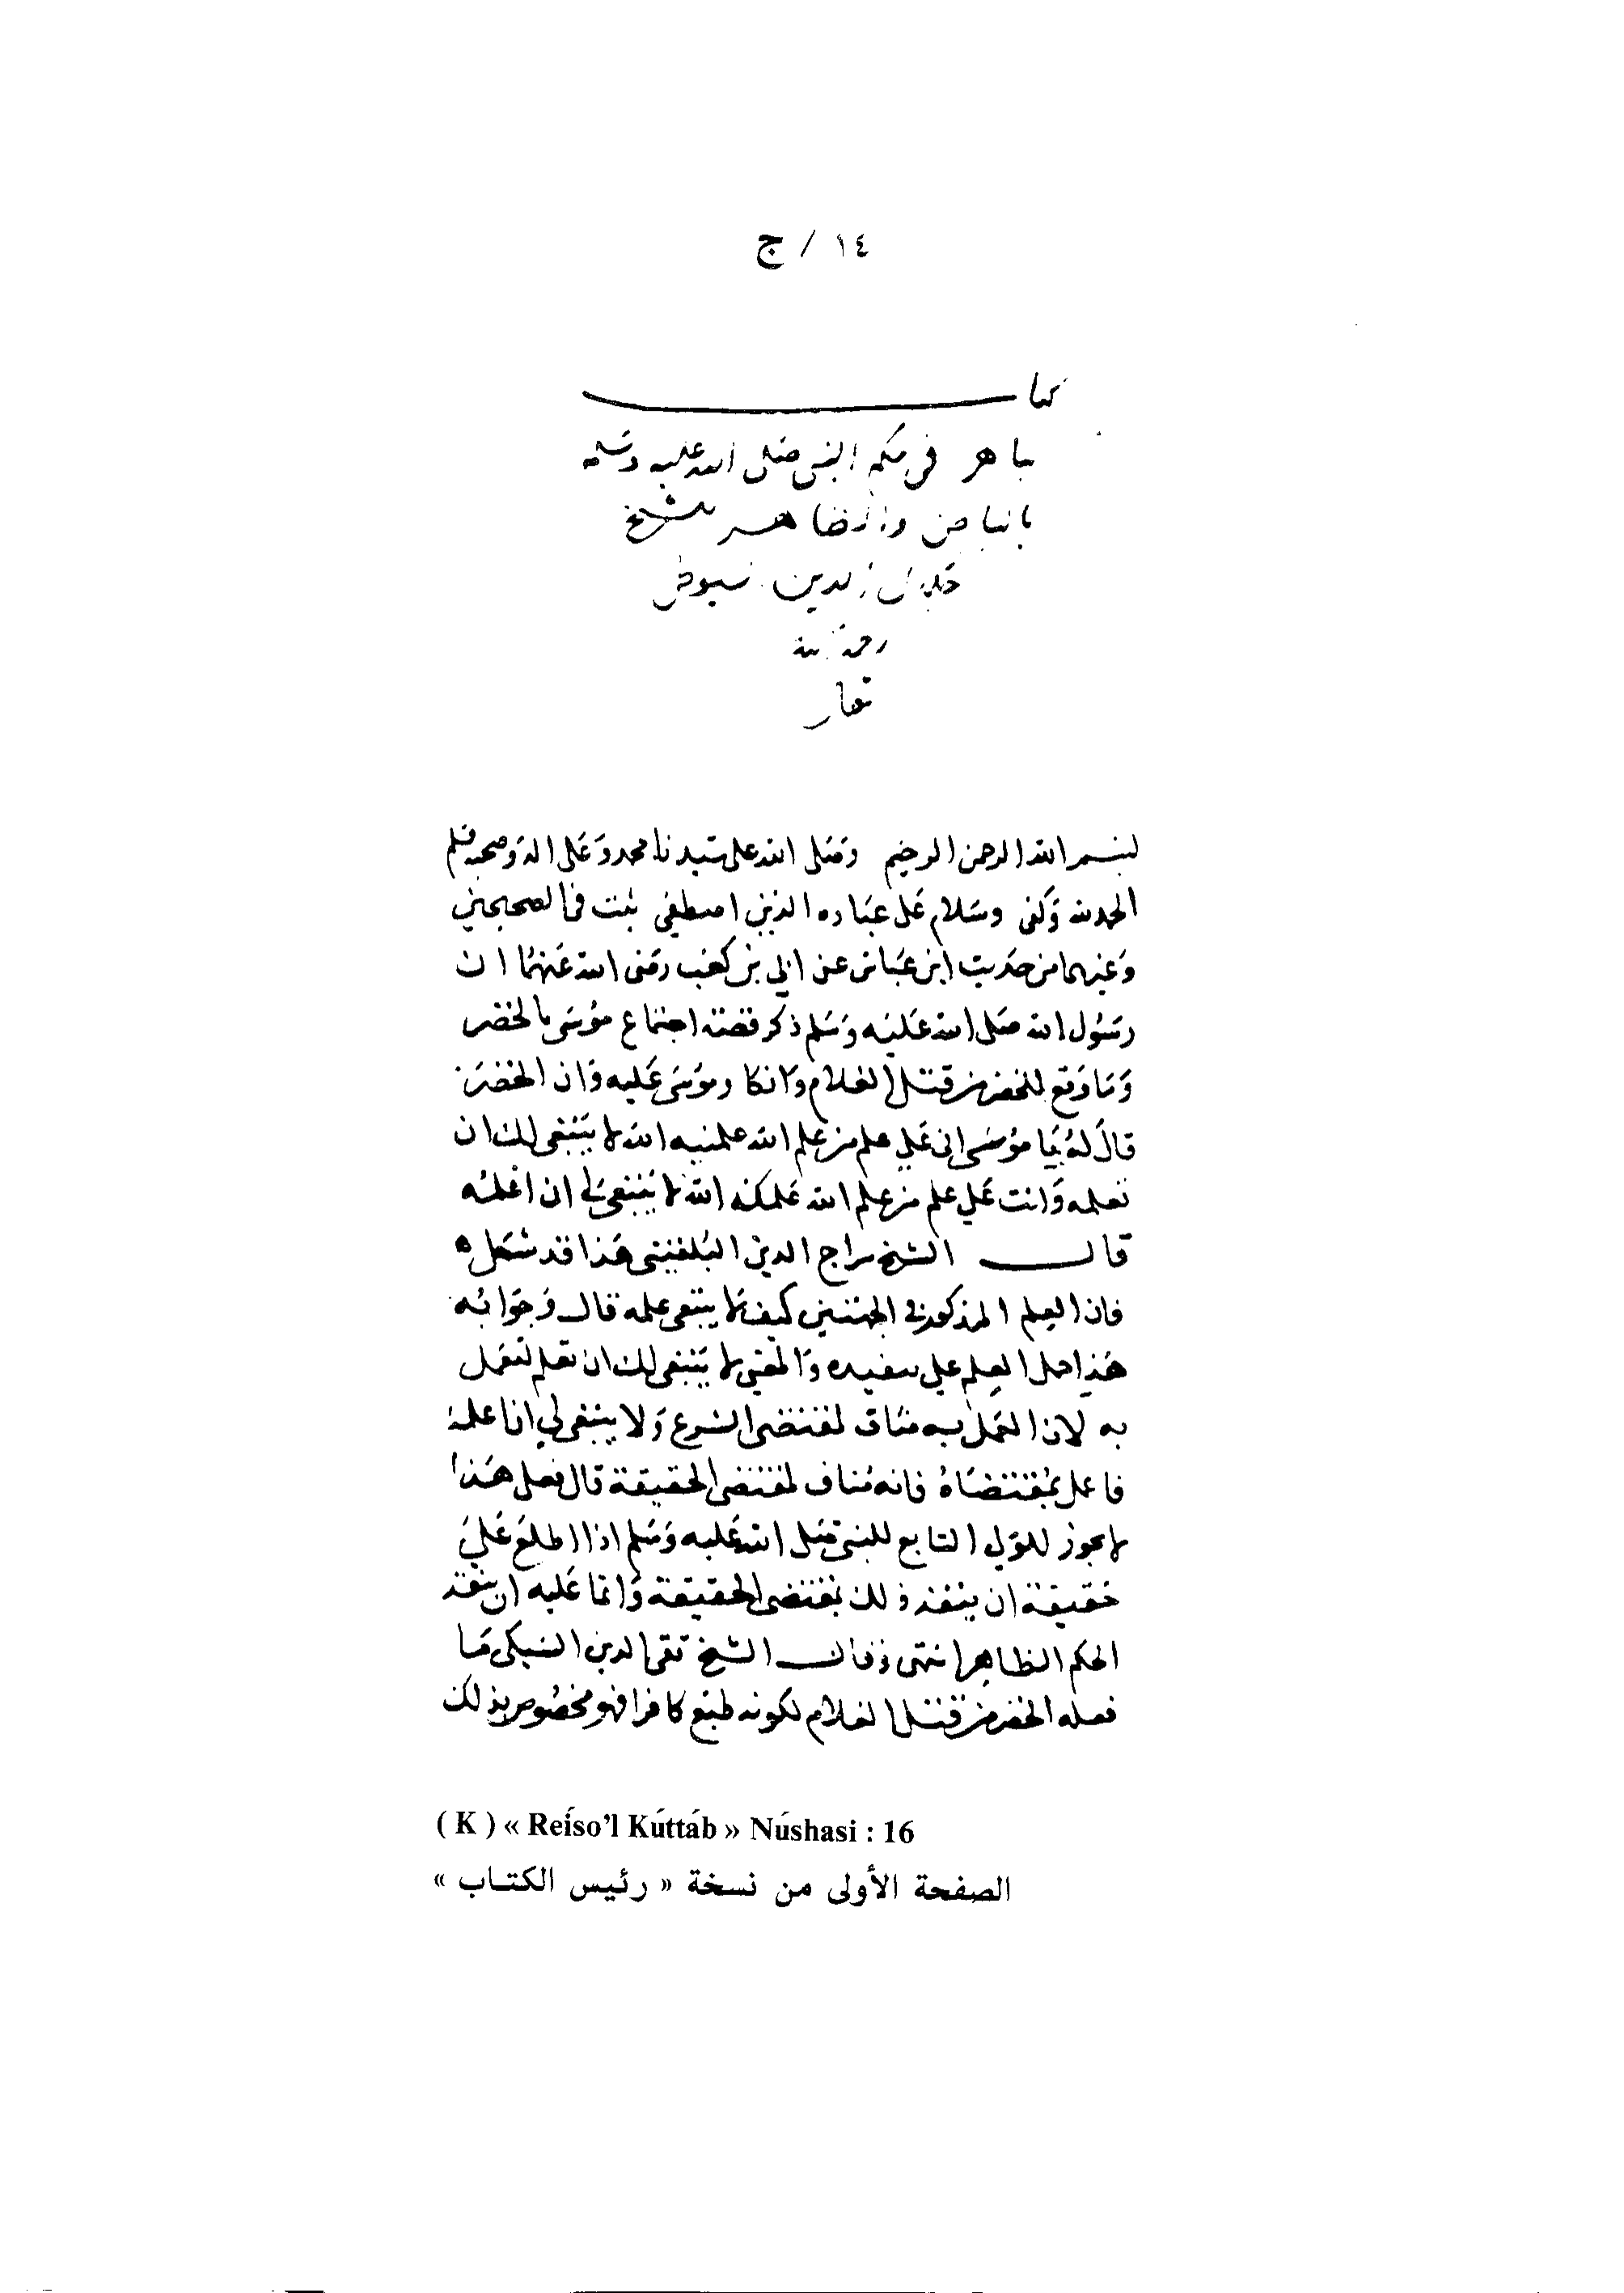 ١٤ / ج
كتاب
باهر في حكم النبي صلى الله عليه وسلم
بالباطن والظاهر للشيخ
جلال الدين سيوطي
رحمة الله
تعالى
بسم الله الرحمن الرحيم وصلى الله على سيدنا محمد وعلى اله وصحبه وسلم
الحمد لله وكفى وسلام على عباده الذين اصطفى ثبت في الصحيحين
وغيرهما من حديث ابن عباس عن ابي بن كعب رضى الله عنهما ان
رسول الله صلى الله عليه وسلم ذكر قصة اجتماع موسى بالخضر
وما وقع للخضر من قتل الغلام وانكار موسى عليه وان الخضر
قال له يا موسى اني على علم من علم الله علمنيه الله لا ينبغى لك ان
تعلمه وانت على علم من علم الله علمكه الله لا ينبغى لي ان اعلمه
قال الشيخ سراج الدين البلقيني هذا قد شكل
فان العلم المذكور في الجهتين كيف لا ينبغى علمه قال وجوابه
هذا حمل العلم على تنفيذه والمعنى لا ينبغى لك ان تعلم لتعمل
به لان العمل به مناف لمقتضى الشرع ولا ينبغى لي ان اعلمه
فاعمل بمقتضاه فانه مناف لمقتضى الحقيقة قال فعلى هذا
لا يجوز للولي التابع للنبى صلى الله عليه وسلم اذا اطلع على
حقيقة ان ينفذ ذلك بمقتضى الحقيقة وانما عليه ان ينفذ
الحكم الظاهر انتهى وقال الشيخ تقى الدين السبكى ما
فعله الخضر من قتل الغلام لكونه طبع كافرا فهو مخصوص بذلك
( K ) « Reíso’l Kúttáb » Núshasi : 16
الصفحة الأولى من نسخة « رئيس الكتاب »